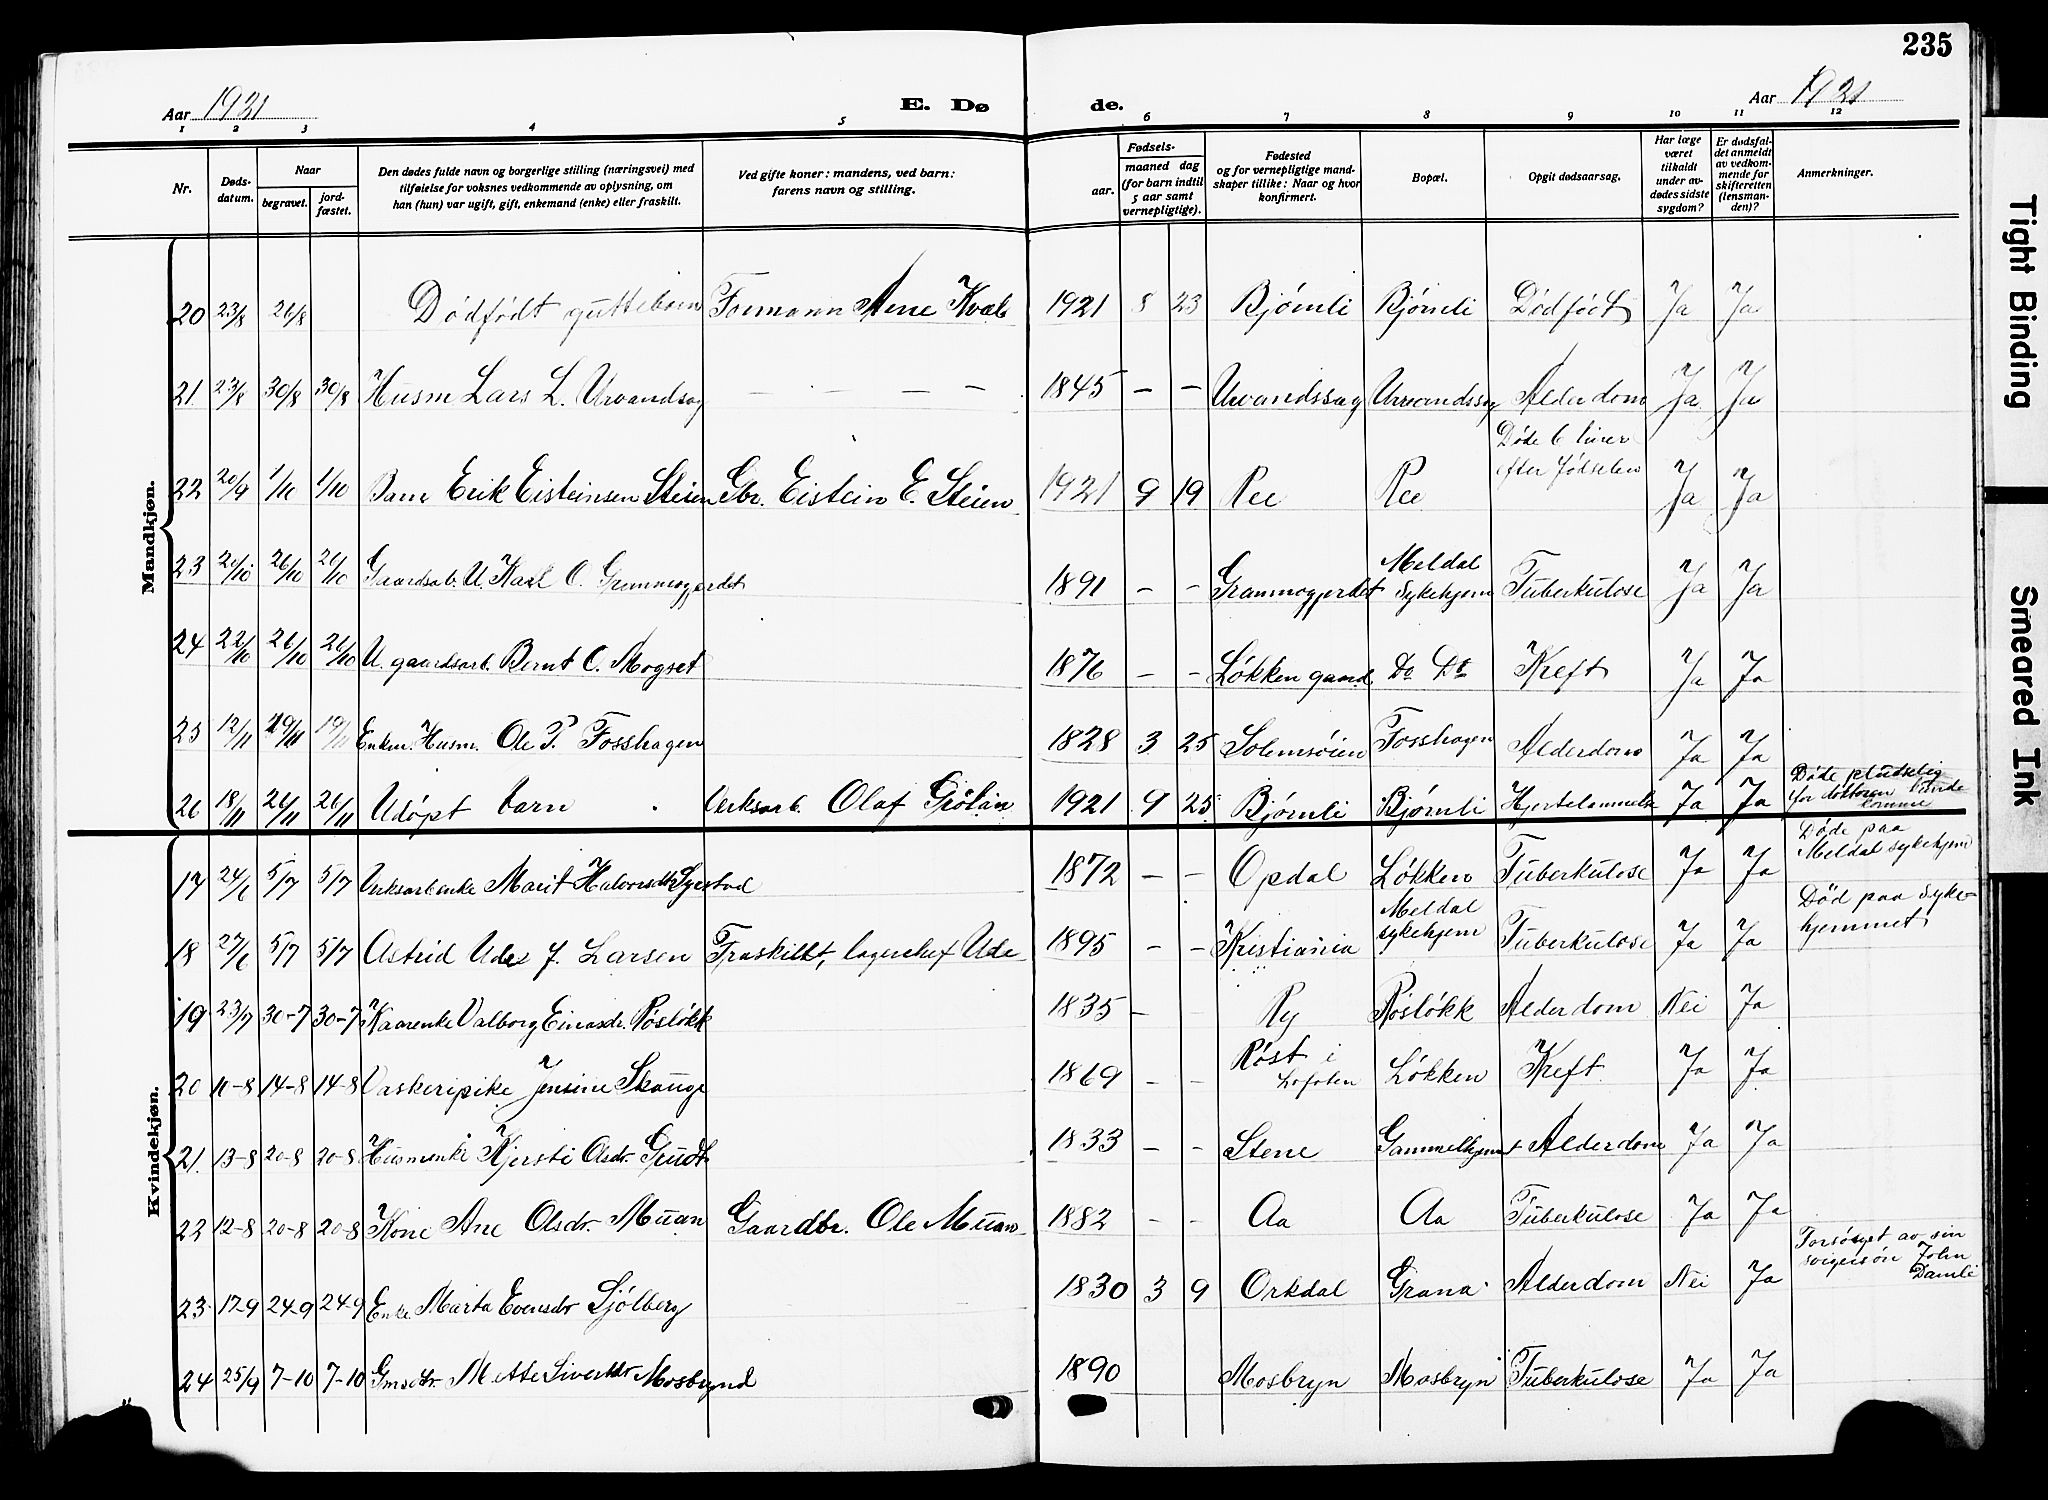 235
Aar 1921 E. Dø de. Aar 1921
1 2 3 4 5 6 7 8 9 10 11 12
Nr. Døds-datum. Naar begravet. jord-fæstet. Den dødes fulde navn og borgerlige stilling (næringsvei) med tilføielse for voksnes vedkommende av oplysning, om han (hun) var ugift, gift, enkemand (enke) eller fraskilt. Ved gifte koner: mandens, ved barn: farens navn og stilling. Fødsels- aar. maaned dag (for barn indtil 5 aar samt vernepligtige). Fødested og for vernepligtige mandskaper tillike: Naar og hvor konfirmert. Bopæl. Opgit dødsaarsag. Har læge været tilkaldt under avdødes sidste sygdom? Er dødsfaldet anmeldt av vedkommende for skifteretten (lensmanden)? Anmerkninger.
Mandkjøn.
20 23/8 26/8 Dødfødt guttebarn Formann Arne Kvale 1921 8 23 Bjørnli Bjørnli Dødfødt Ja Ja
21. 23/8 30/8 30/8 Husm Lars L. Urvandsag – – – 1845 – – Urvandssag Urvandssag Alderdom Ja Ja
22 20/9 1/10 1/10 Barn Erik Eisteinsen Steien Gbr. Eistein E. Steien 1921 9 19 Ree Ree Døde 6 timer efter fødselen Ja Ja
23 26/10 26/10 Gaardsarb. U. Karl O. Grammogjerdet 1891 – – Grammogjerdet Meldal Sykehjem Tuberkulose Ja Ja
24 22/10 26/10 26/10 U. gaardsarb. Bernt O. Mogset 1876 – – Løkken gaard Do Do Kreft Ja Ja
25 12/11 19/11 19/11 Enkem. Husm. Ole P. Fosshagen 1828 3 25 Solemsøien Fosshagen Alderdom Ja Ja
26 18/11 26/11 26/11 Udøpt barn Verksarb. Olaf Grötan 1921 9 25 Bjørnli Bjørnli Hjertelammelse Ja Ja Døde pludselig før doktoren kunde komme
Kvindekjøn.
17 24/6 5/7 5/7 Verksarb enke Marit Halvorsdtr 1872 – – Opdal Løkken Tuberkulose Ja Ja Døde paa Meldal sykehjem
18 27/6 5/7 5/7 Astrid Ude f. Larsen Fraskillt, lagerchef Ude 1895 – – Kristiania Meldal sykehjem Tuberkulose Ja Ja Død paa sykehjemmet
19 23/7 30-7 30-7 Kaarenke Valborg Einarsdr. Røsløkk 1835 – Ry Røsløkk Alderdom Nei Ja
20 11-8 14-8 14-8 Vaskeripike Jensine Skauge 1869 – – Røst i Lofoten Løkken Kreft Ja Ja
21. 13-8 20-8 20-8 Husmenke Kjersti Olsdr. Grudt 1833 – – Stene Gammelhjemmet Alderdom Ja Ja
22 12-8 20-8 20-8 Kone Ane Olsdr. Muan Gaardbr. Ole Muan 1882 – – Aa Aa Tuberkulose Ja Ja
23. 17-9 24-9 24-9 Enke. Marta Evensdr Sjølberg 1830 3 9 Orkdal Grana Alderdom Nei Ja Forsørget av sin svigersøn John Damli
24 25/9 7-10 7-10 Gmsdtr. Mette Sivertdtr Mosbrynd 1890 Mosbryn Mosbryn Tuberkulose Ja Ja
Tight Binding
Smeared Ink